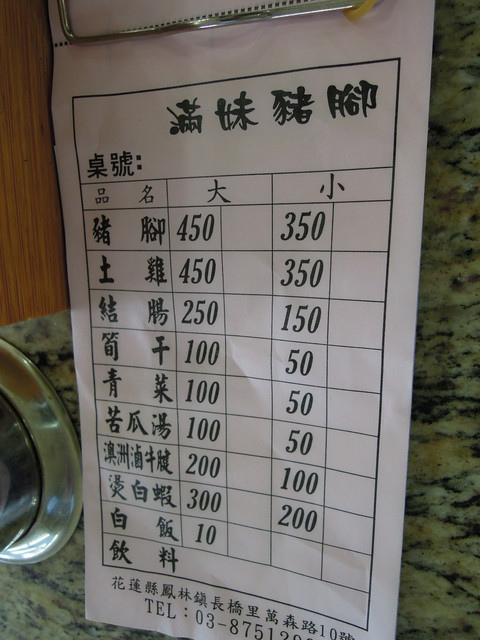 滿妹豬腳
桌號:
品 名 大 小
豬 腳 450 350
土 雞 450 350
結 腸 250 150
筍 干 100 50
青 菜 100 50
苦瓜湯 100 50
澳洲滷牛腱 200 100
燙白蝦 300 200
白 飯 10
飲 料
花蓮縣鳳林鎮長橋里萬森路10號
TEL:03-8751